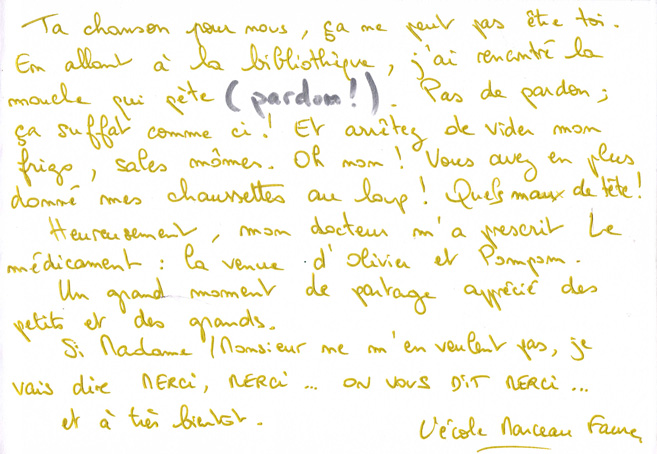 Ta chanson pour nous, ça ne peut pas être toi.
En allant à la bibliothèque, j'ai rencontré la
mouche qui pète (pardon!). Pas de pardon ;
ça suffat comme ci! Et arrêtez de vider mon
frigo, sales mômes. Oh non! Vous avez en plus
donné mes chaussettes au loup! Quels maux de tête!
Heureusement, mon docteur m'a prescrit le
médicament : la venue d'Olivier et Pompom.
Un grand moment de partage apprécié des
petits et des grands.
Si Madame/Monsieur ne m'en veulent pas, je
vais dire MERCI, MERCI... ON VOUS DIT MERCI...
et à très bientôt.
L'école Marceau Faure